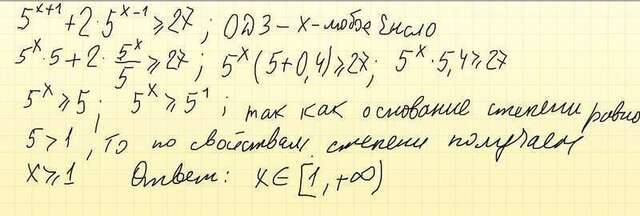 5^{x+1} + 2·5^{x-1} ≥ 27 ; ОДЗ - x - любое число
5^x · 5 + 2 · 5^x/5 ≥ 27 ; 5^x (5 + 0,4) ≥ 27 ; 5^x · 5,4 ≥ 27
5^x ≥ 5 ; 5^x ≥ 5^1 ; так как основание степени равно
5 > 1 , то по свойствам степени получаем
x ≥ 1 Ответ: x ∈ [1, +∞)